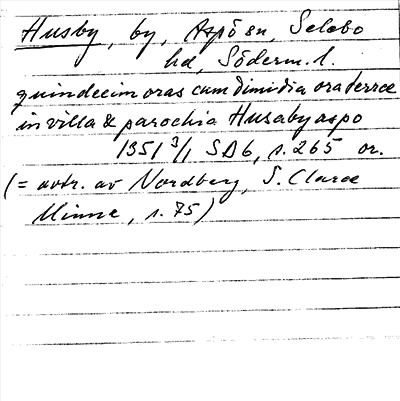 Husby, by, Aspö sn, Selebo
hd, Söderm. l.
quindecim oras cum dimidia ora terrae
in villa & parochia Husaby aspo
1351 3/1 SD6, s. 265 or.
(= avtr. av Nordberg, S. Clarae
Minne, s. 75)